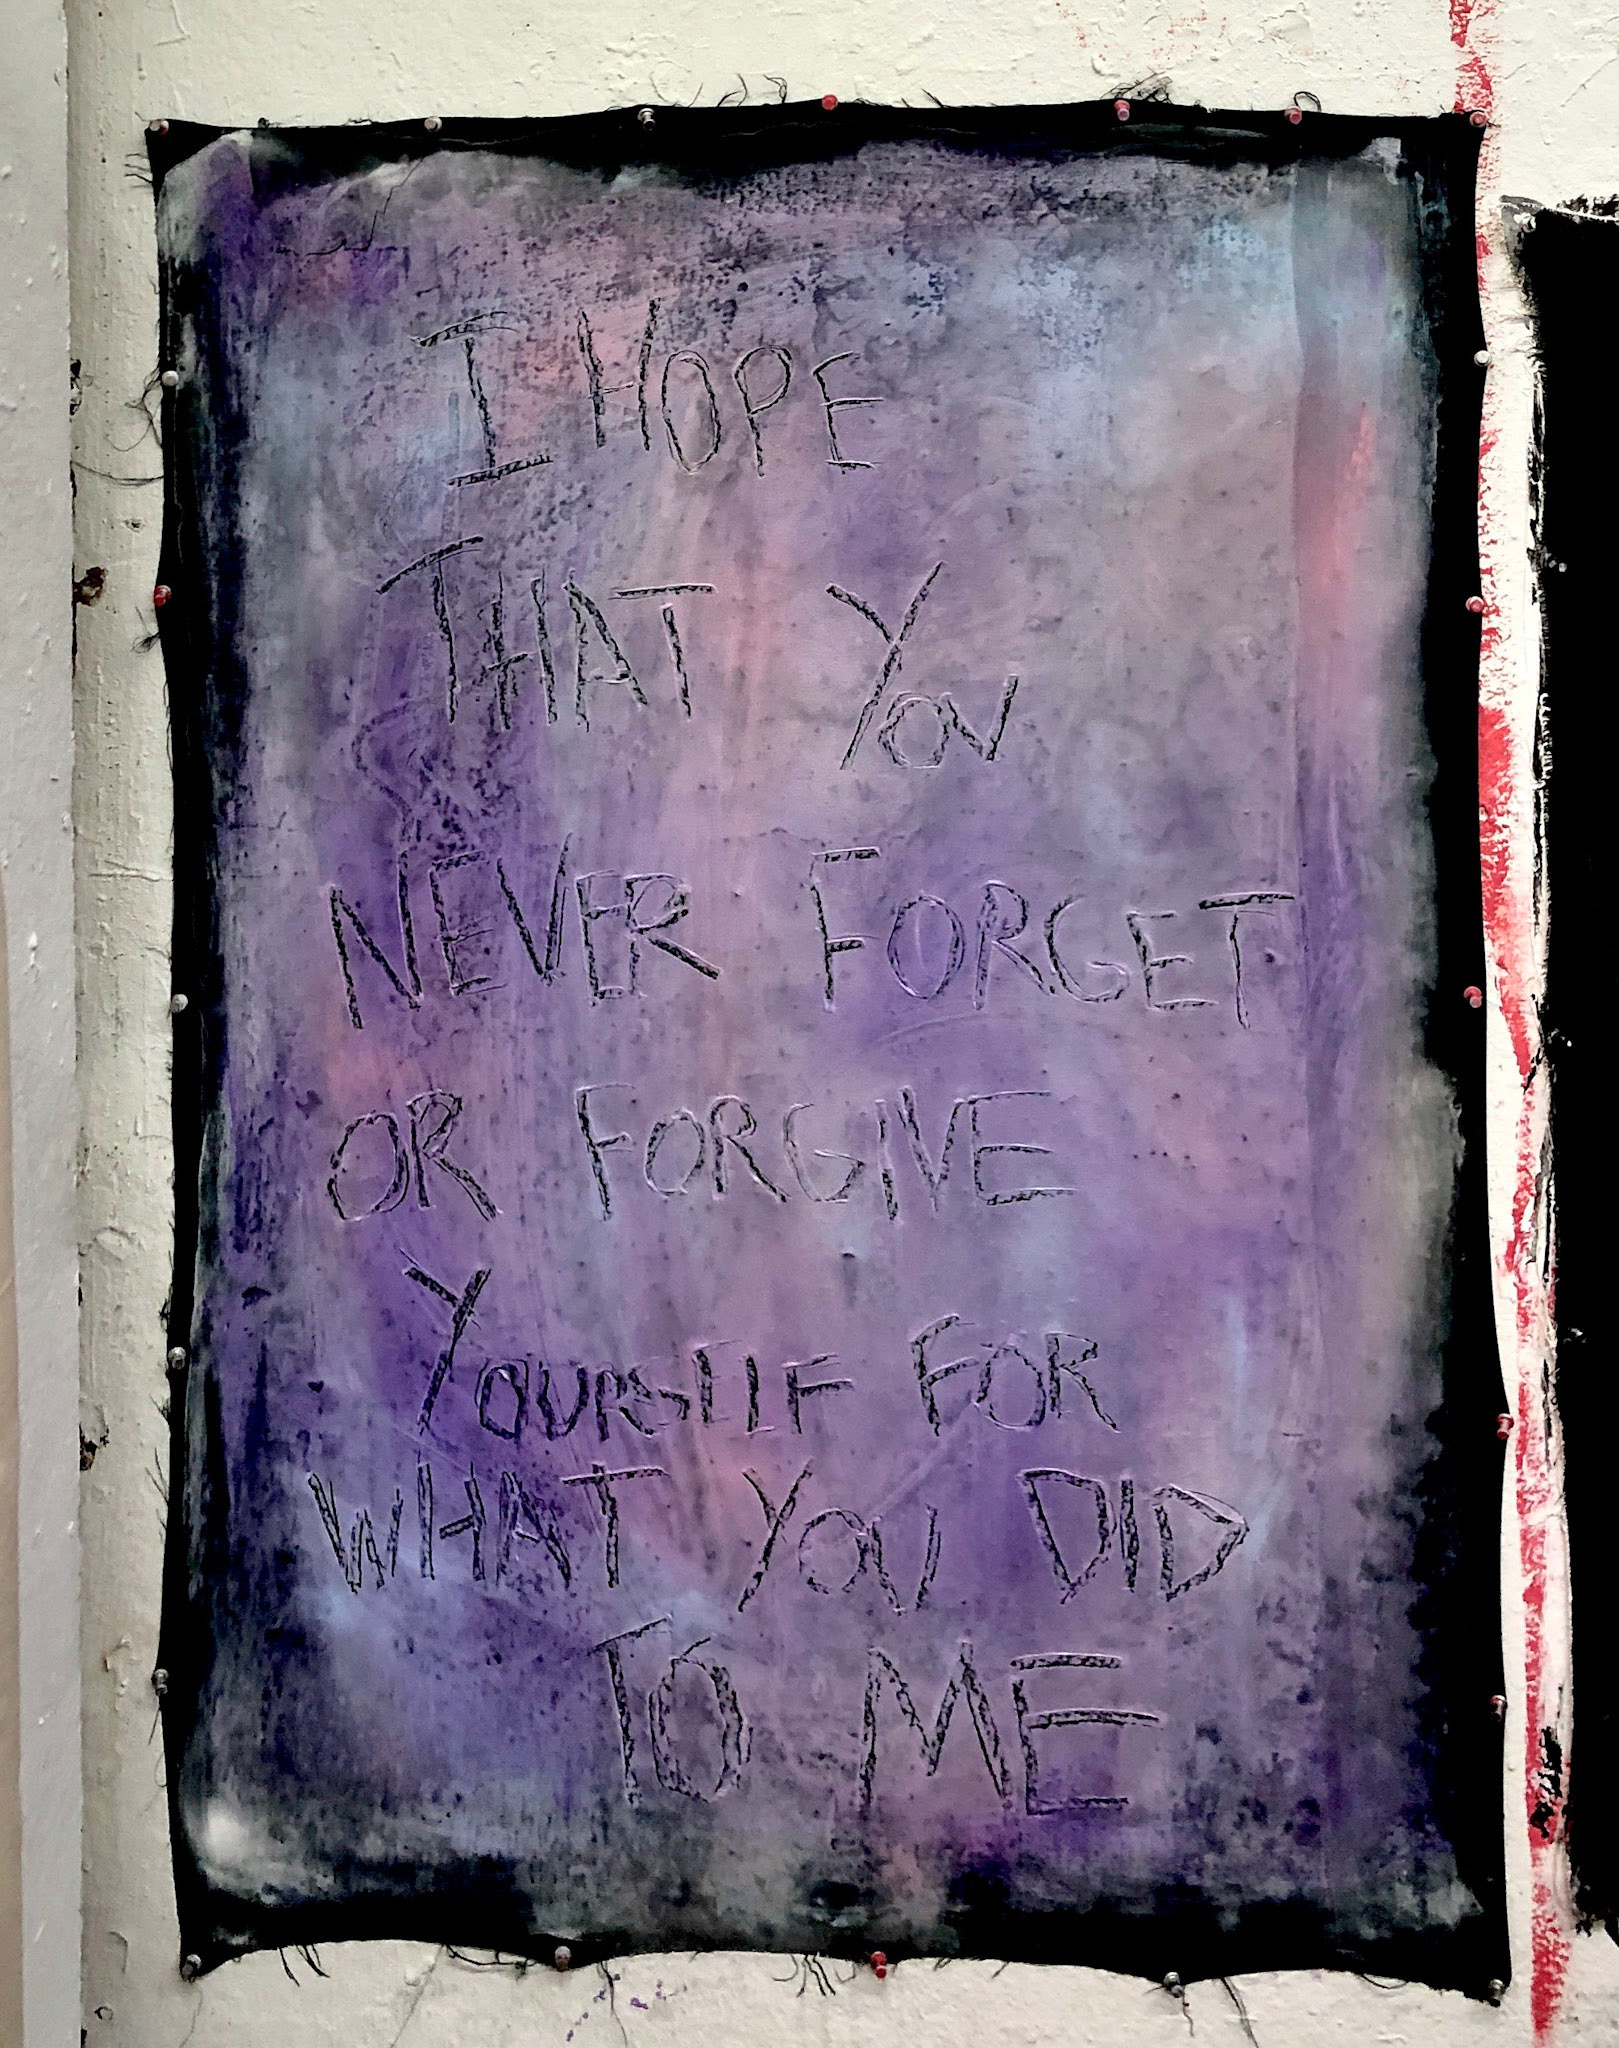 I HOPE
THAT YOU
NEVER FORGET
OR FORGIVE
YOURSELF FOR
WHAT YOU DID
TO ME